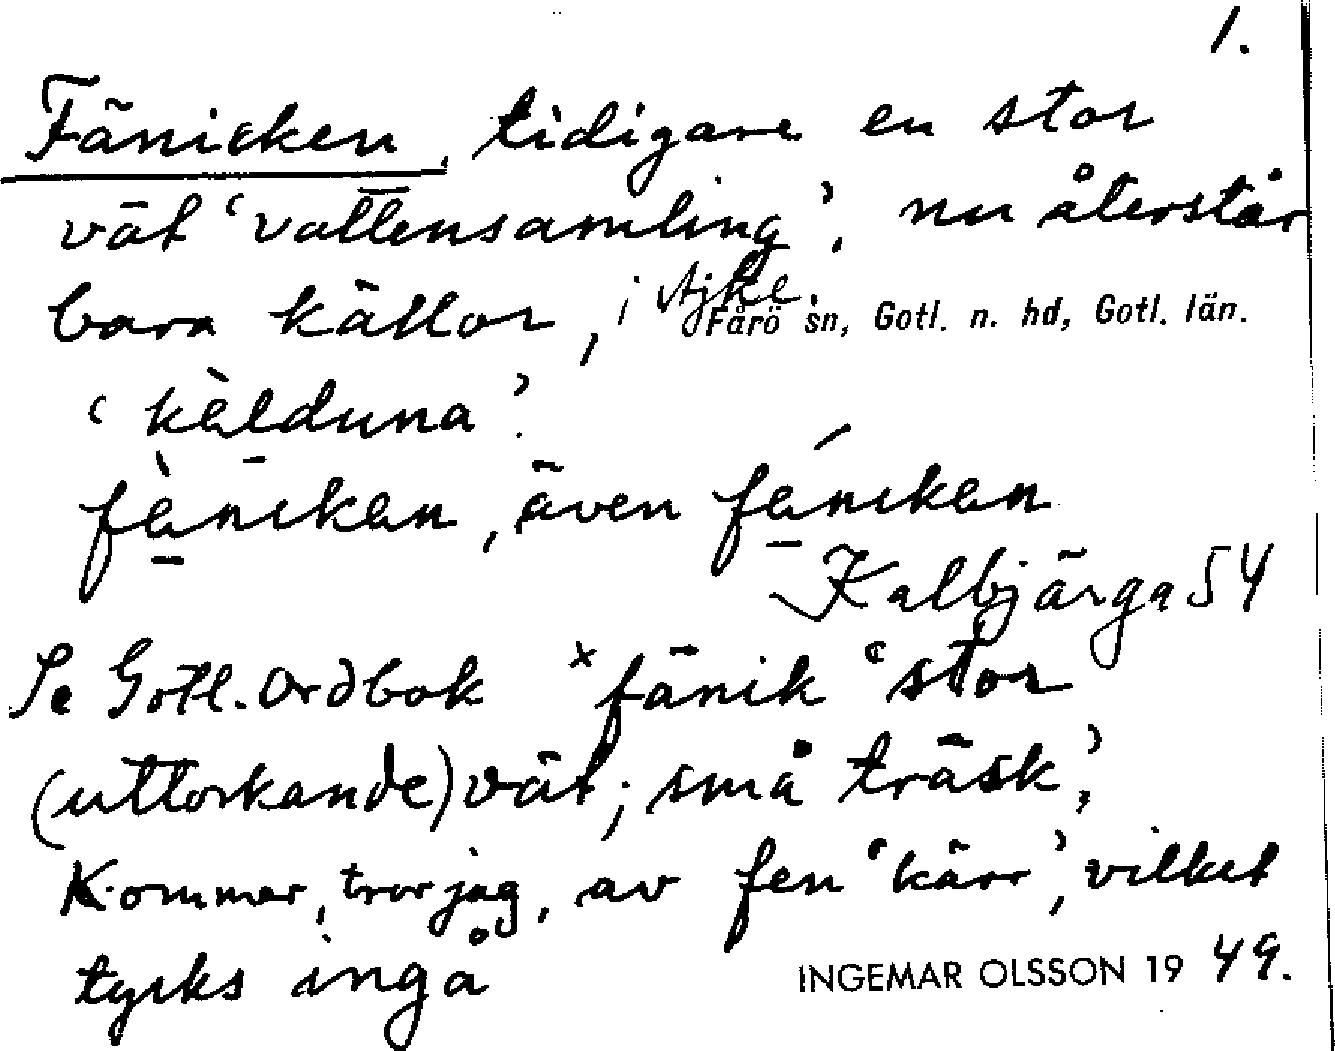 1.
Fänicken, tidigare en stor
vät ‘vattensamling’, nu återstår
bara källor, i Ajke.
Fårö sn, Gotl. n. hd, Gotl. län.
‘kälduna’.
fànıkan, även fánıkan
Kalbjärga 54
Se Gotl. Ordbok *fänik ‘stor
(uttorkande) vät; små träsk’,
Kommer, tror jag, av fen ‘kärr’, vilket
tycks ingå
INGEMAR OLSSON 1949.